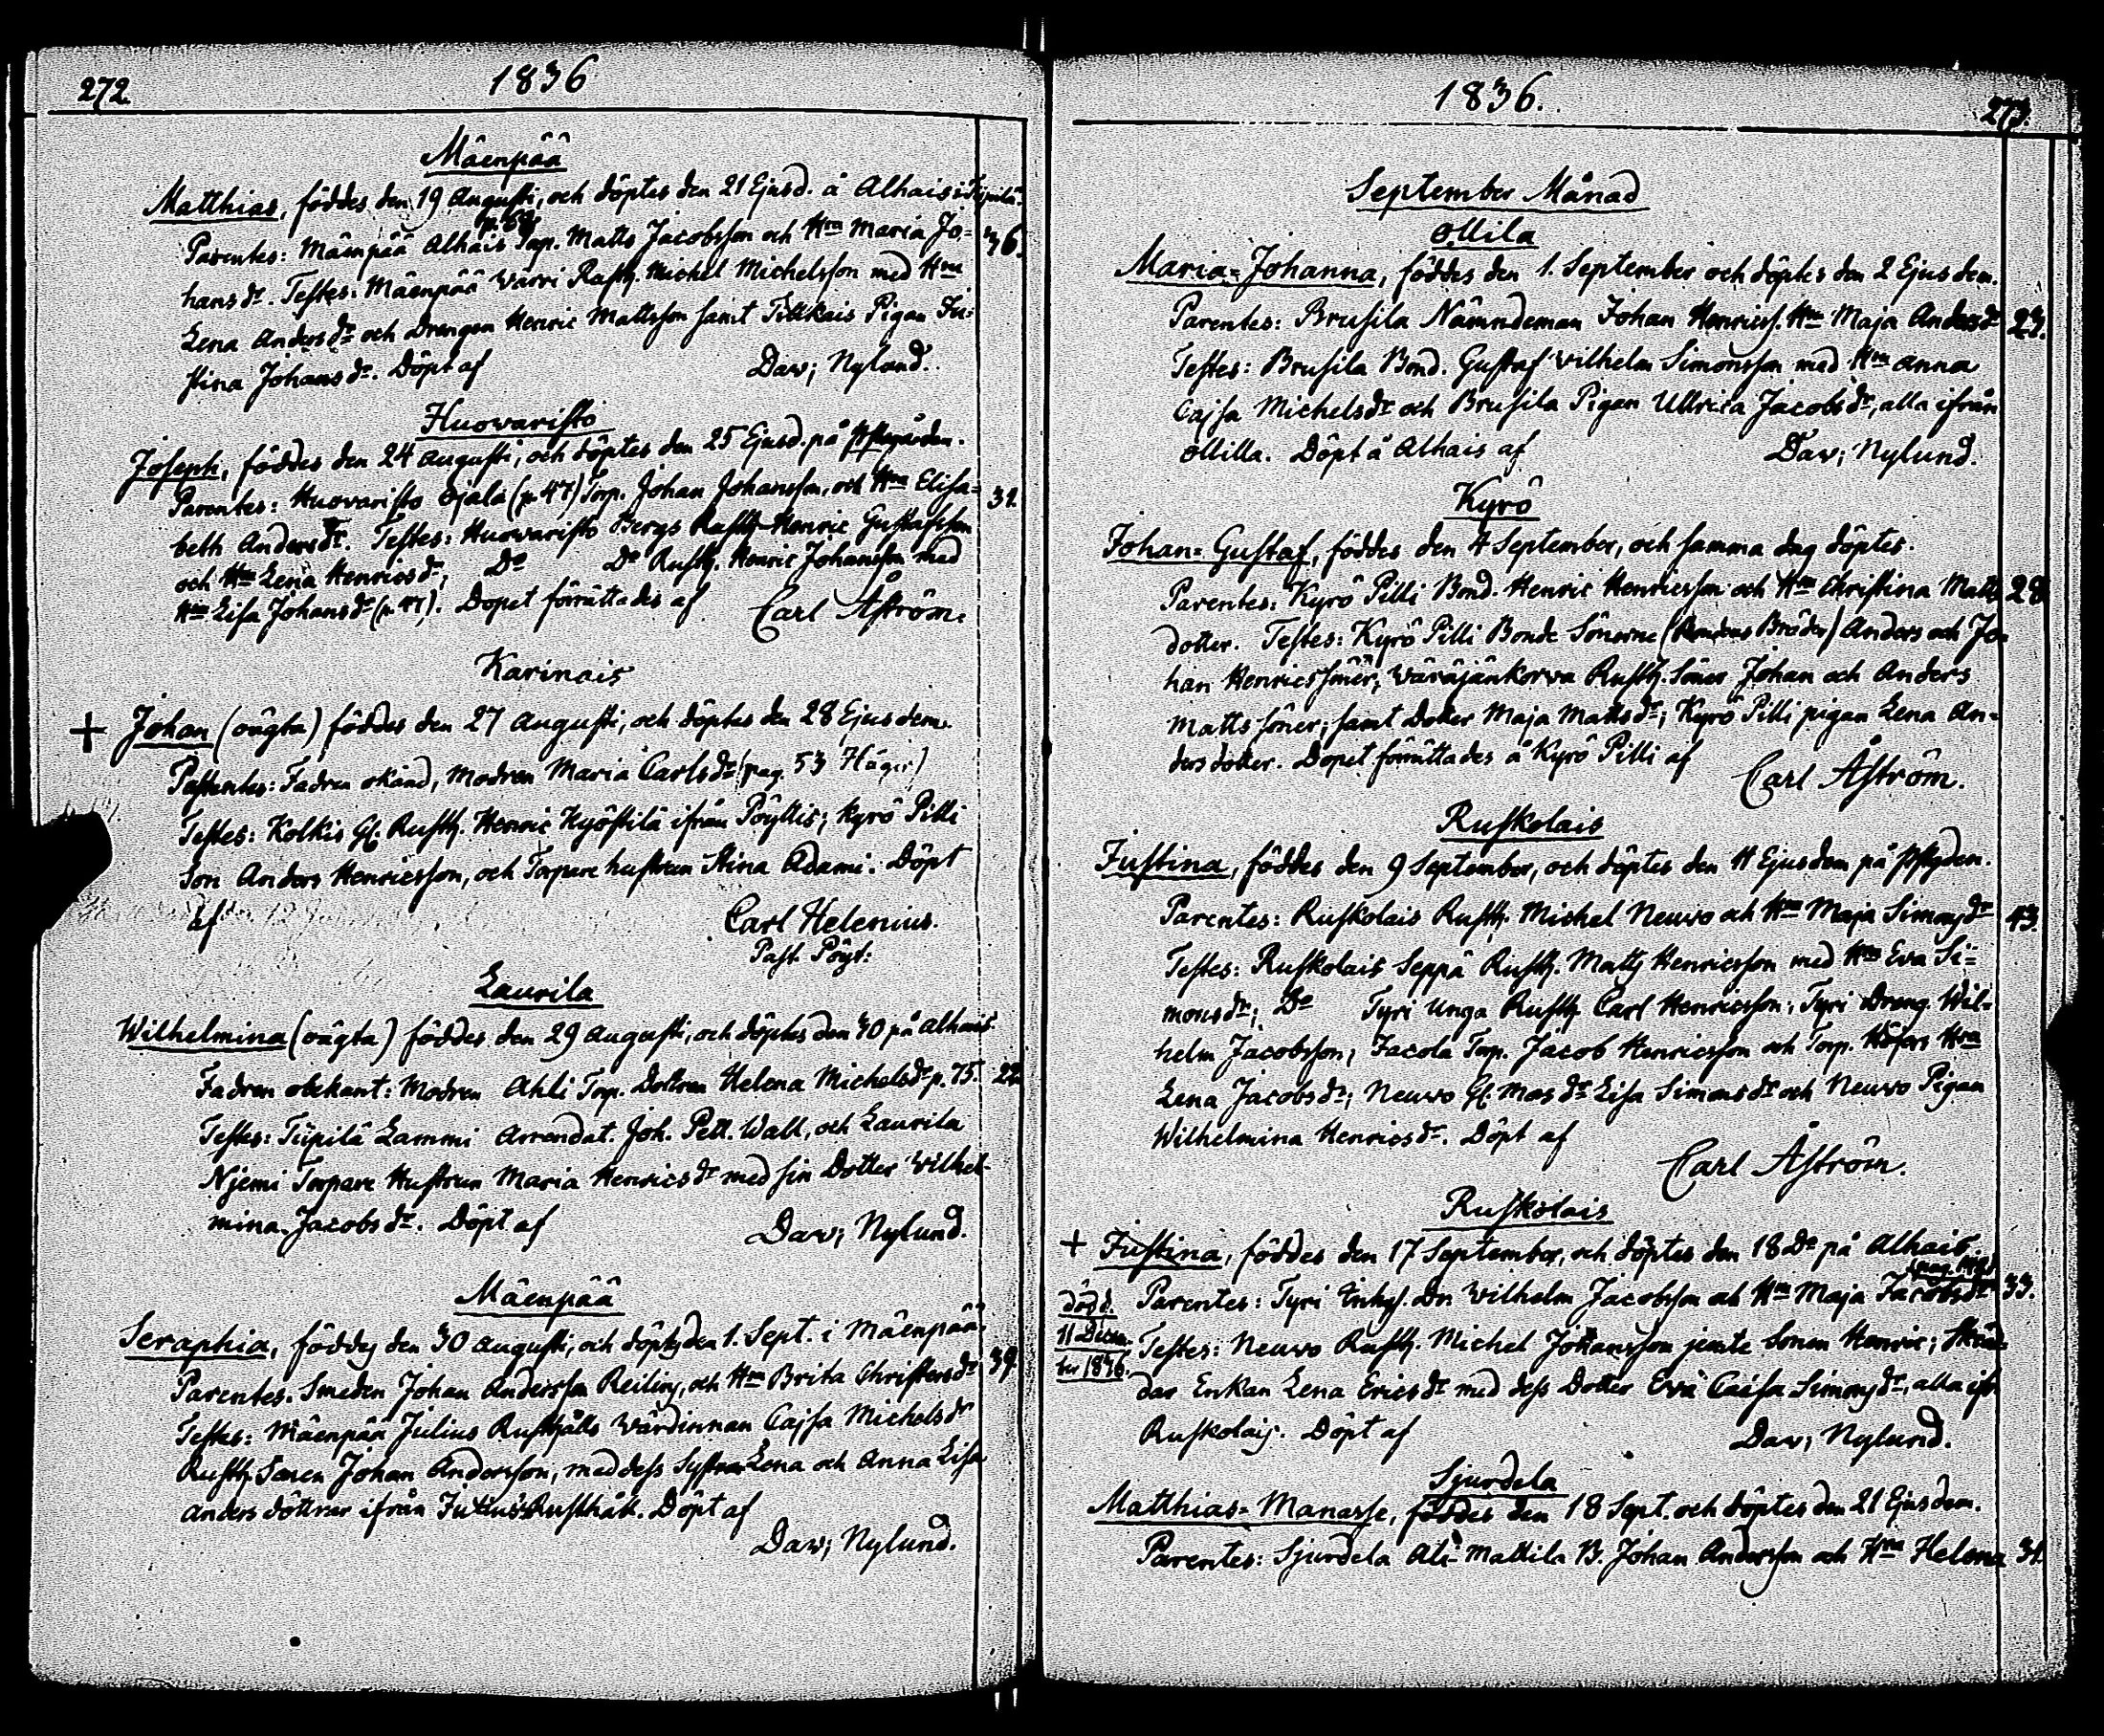 272.
1836
Mäenpää
Matthias, föddes den 19 Augusti, och döptes den 21 Ejusd. å Alhais i
p. 69
Parentes: Mäenpää Alhais Torp. Matts Jacobsson och Hru Maria Jo= 36.
hansdr. Testes: Mäenpää Wärri Rusth. Michel Michelsson med Hru
Lena Andersdr och Drengen Henric Mattsson samt Pigan Ju=
stina Johansdr. Döpt af Dav; Nylund.
Huovaristo
Joseph, föddes den 24 Augusti, och döptes den 25 Ejusd. på
Parentes: Huovaristo Ojala (p. 47) Torp. Johan Johansson, och Hru Elisa= 31.
beth Andersdr. Testes: Huovaristo Bergs Rusth. Henric Gustafsson
och Hru Lena Henricsdr; Do Do Rusth. Henric Johansson med
Hru Lisa Johansdr (p. 47). Dopet förrättades af Carl Åström.
Karinais
+ Johan (oägta) föddes den 27 Augusti, och döptes den 28 Ejusdem.
Parentes: Fadren okänd, Modren Maria Carlsdr (pag. 53 )
Testes: Kolkis Gl. Rusth. Henric Kyöstilä ifrån Pöyttis; Kyrö Pilli
Son Anders Henricsson, och Torpare hustrun Stina Adami. Döpt
af Carl Helenius.
Past. Pöyt:
Laurila
Wilhelmina (oägta) föddes den 29 Augusti, och döptes den 30 på Alhais.
Fadren obekant: Modren Ahli Torp. Dottren Helena Michelsdr p. 75. 22
Testes: Tüpilä Lammi Arrendat. Joh. Pett. Wall, och Laurila
Njemi Torpare Hustrun Maria Henricsdr med sin Dotter Wilhel-
mina Jacobsdr. Döpt af Dav; Nylund.
Mäenpää
Seraphia, föddes den 30 Augusti, och döptes den 1. Sept. i Mäenpää.
Parentes. Smeden Johan Andersson Reiling, och Hru Brita Christersdr 39.
Testes: Mäenpää Julius Rusthålls Wärdinnan Cajsa Michelsdr
Rusth. Sonen Johan Andersson, med dess Syster Lena och Anna Lisa
Anders döttrar ifrån Julius Rusthåll. Döpt af
Dav; Nylund.
1836.
273.
September Månad
Ollila
Maria=Johanna, föddes den 1. September och döptes den 2 Ejusdem.
Parentes: Brusila Nämndeman Johan Henricss. Hru Maja Andersdr 23.
Testes: Brusila Bond. Gustaf Wilhelm Simonsson med Hru Anna
Cajsa Michelsdr och Brusila Pigan Ullrica Jacobsdr, alla ifrån
Ollila. Döpt å Alhais af Dav; Nylund.
Kyrö
Johan=Gustaf, föddes den 4 September, och samma dag döptes.
Parentes: Kyrö Pilli Bond. Henric Henricsson och Hru Christina Matts 28
dotter. Testes: Kyrö Pilli Bonde Sönerne (Bröder) Anders och Jo=
han Henricssöner; Wäräjänkorva Rusth. Söner Johan och Anders
Matts söner; samt Dotter Maja Mattsdr; Kyrö Pilli pigan Lena An=
dersdotter. Dopet förrättades å Kyrö Pilli af
Carl Åström.
Ruskolais
Justina, föddes den 9 September, och döptes den 11 Ejusdem på
Parentes: Ruskolais Rusth. Michel Neuvo och Hru Maja Simonsdr 43.
Testes: Ruskolais Seppä Rusth. Matts Henricsson med Hru Eva Si=
monsdr; Do Tyri Unga Rusth. Carl Henricsson; Tyri Dreng. Wil-
helm Jacobsson; Jacola Torp. Jacob Henricsson och Torp. Hru
Lena Jacobsdr; Neuvo Gl. Mos dr Lisa Simonsdr och Neuvo Pigan
Wilhelmina Henricsdr. Döpt af
Carl Åström.
Ruskolais
+ Justina, föddes den 17 September, och döptes den 18 Do på Alhais.
Parentes: Tyri Inhys. Dr. Wilhelm Jacobsson och Hru Maja Jacobsdr 33.
död d.
11 Decem-
ber 1836.
Testes: Neuvo Rusth. Michel Johansson jemte Sonen Henric;
Enkan Lena Ericsdr med dess Dotter Eva Caisa Simonsdr, alla ifr.
Ruskolais. Döpt af Dav; Nylund.
Sjurdela
Matthias=Manasse, föddes den 18 Sept. och döptes den 21 Ejusdem.
Parentes: Sjurdela Ali-Mattila B. Johan Andersson och Hru Helena 31.